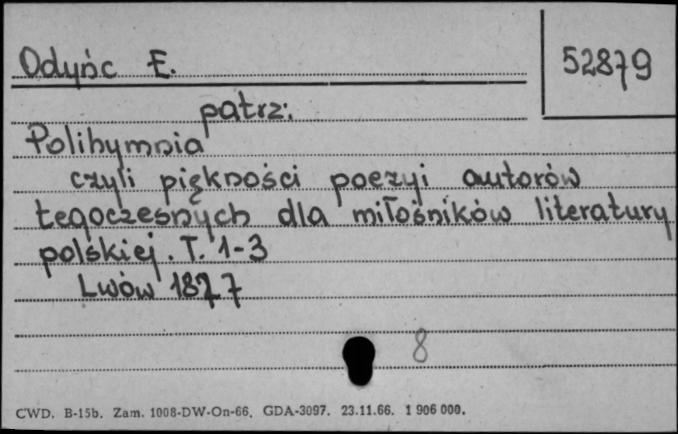 Odyńc E.
52879
patrz:
Polihymnia
czyli piękności poezyi autorów
tegoczesnych dla miłośników literatury
polskiej. T. 1-3
Lwów 1827
8
CWD. B-15b. Zam. 1008-DW-On-66. GDA-3097. 23.11.66. 1 906 000.